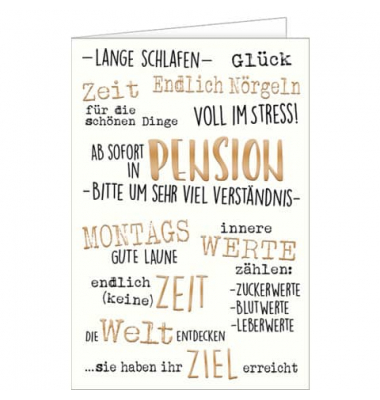 –LANGE SCHLAFEN– Glück
Zeit Endlich Nörgeln
für die
schönen Dinge VOLL IM STRESS!
AB SOFORT
IN PENSION
–BITTE UM SEHR VIEL VERSTÄNDNIS–
MONTAGS
GUTE LAUNE
innere
WERTE
zählen:
-ZUCKERWERTE
-BLUTWERTE
-LEBERWERTE
endlich
(keine) ZEIT
DIE Welt ENTDECKEN
...sie haben ihr ZIEL erreicht